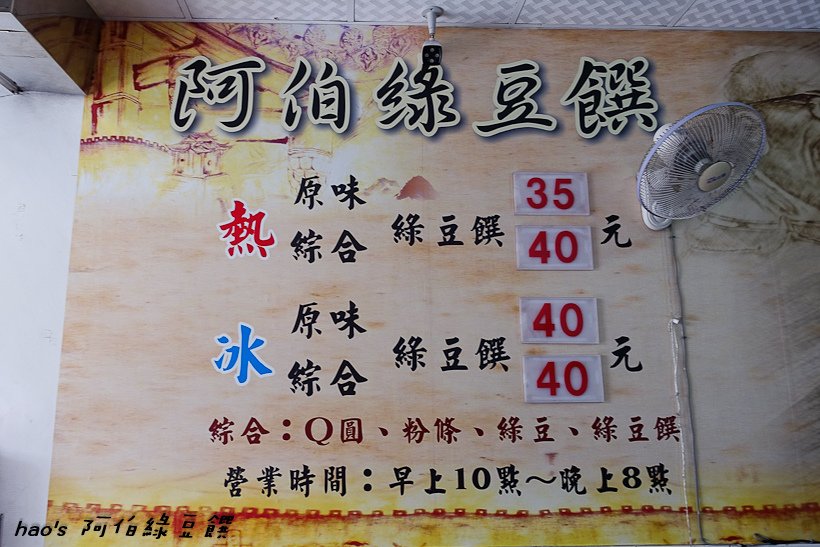 阿伯綠豆饌
熱
原味
綜合
綠豆饌
35
40
元
冰
原味
綜合
綠豆饌
40
40
元
綜合：Q圓、粉條、綠豆、綠豆饌
營業時間：早上10點～晚上8點
hao's 阿伯綠豆饌